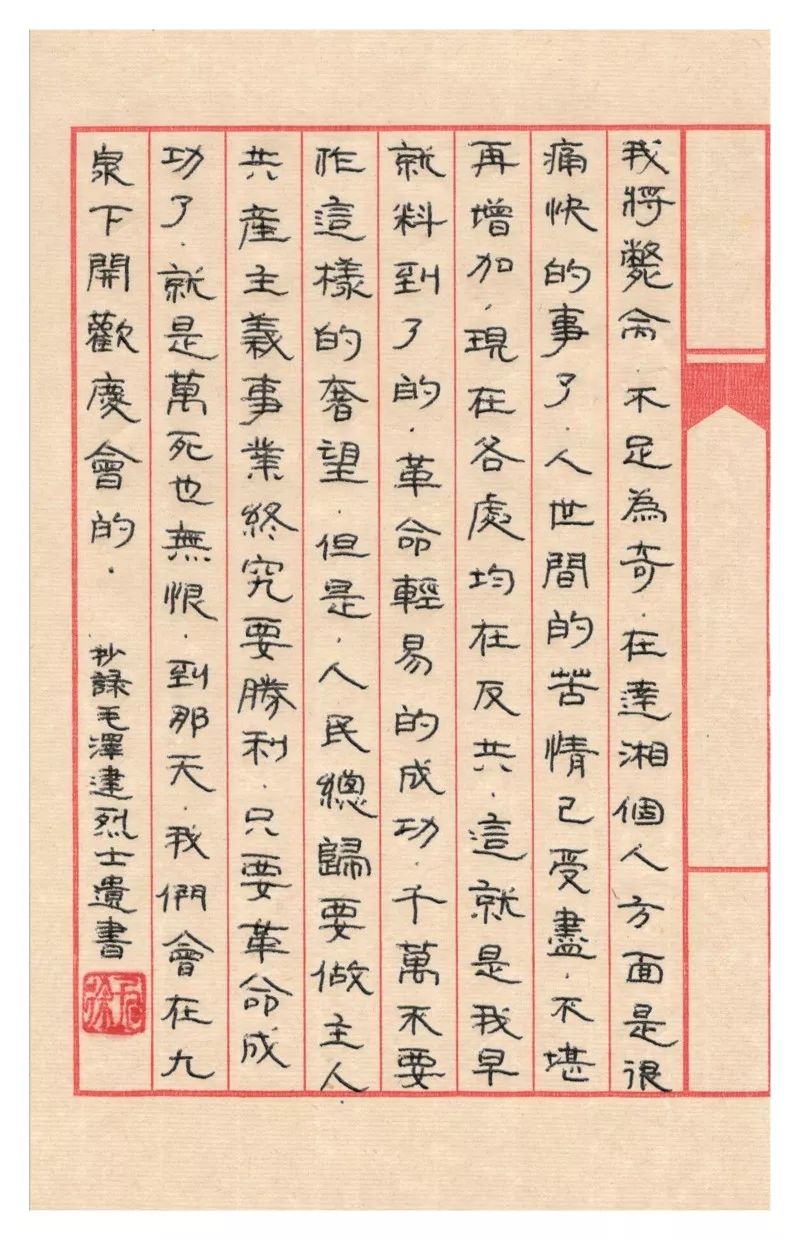 我將斃命.不足為奇.在達湘個人方面是很
痛快的事了.人世間的苦情已受盡.不堪
再增加.現在各處均在反共.這就是我早
就料到了的.革命輕易的成功.千萬不要
作這樣的奢望.但是.人民總歸要做主人
共產主義事業終究要勝利.只要革命成
功了.就是萬死也無恨.到那天.我們會在九
泉下開歡慶會的.
抄錄毛澤建烈士遺書